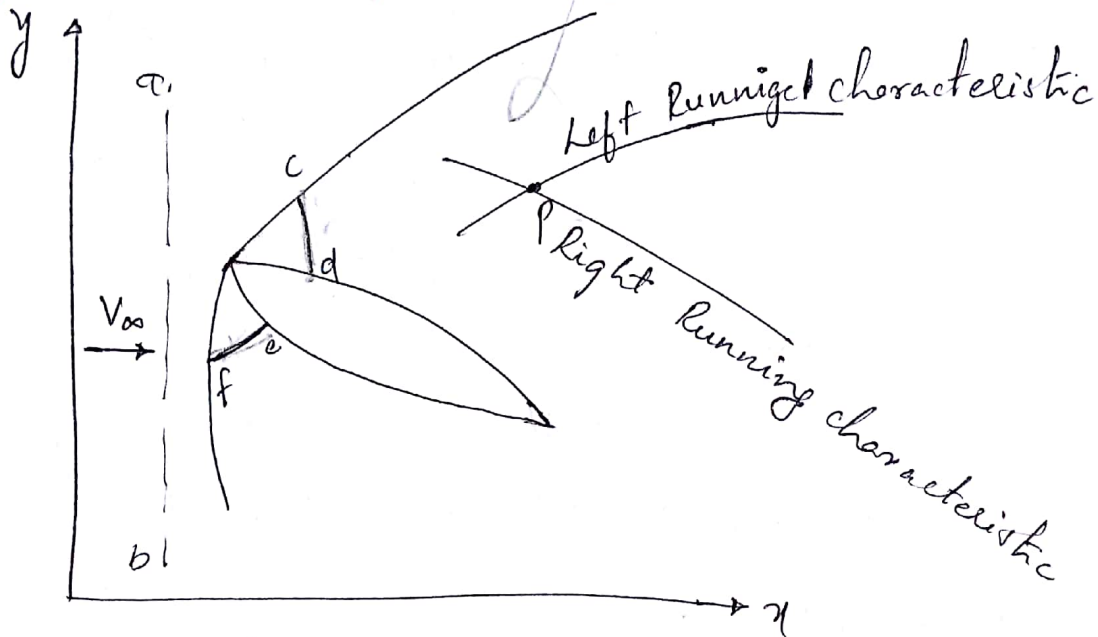 y
a
c
Left Runnigd characteristic
P
Right Running characteristic
d
V∞
e
f
b
x